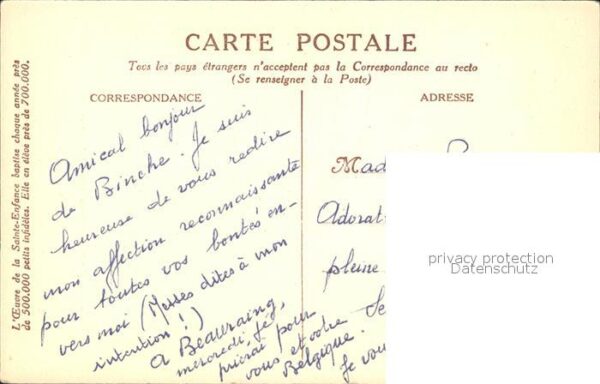 CARTE POSTALE
Tous les pays étrangers n'acceptent pas la Correspondance au recto
(Se renseigner à la Poste)
CORRESPONDANCE
ADRESSE
L'Œuvre de la Sainte-Enfance baptise chaque année près
de 500.000 petits infidèles. Elle en élève près de 700.000.
Amical bonjour
de Binche. Je suis
heureuse de vous redire
mon affection reconnaissante
pour toutes vos bontés en-
vers moi (Messes dites à mon
intention !)
A Beauraing,
mercredi,
prierai pour
vous et votre
Belgique.
Je vou
Mad
Adorat
pleine
privacy protection
Datenschutz